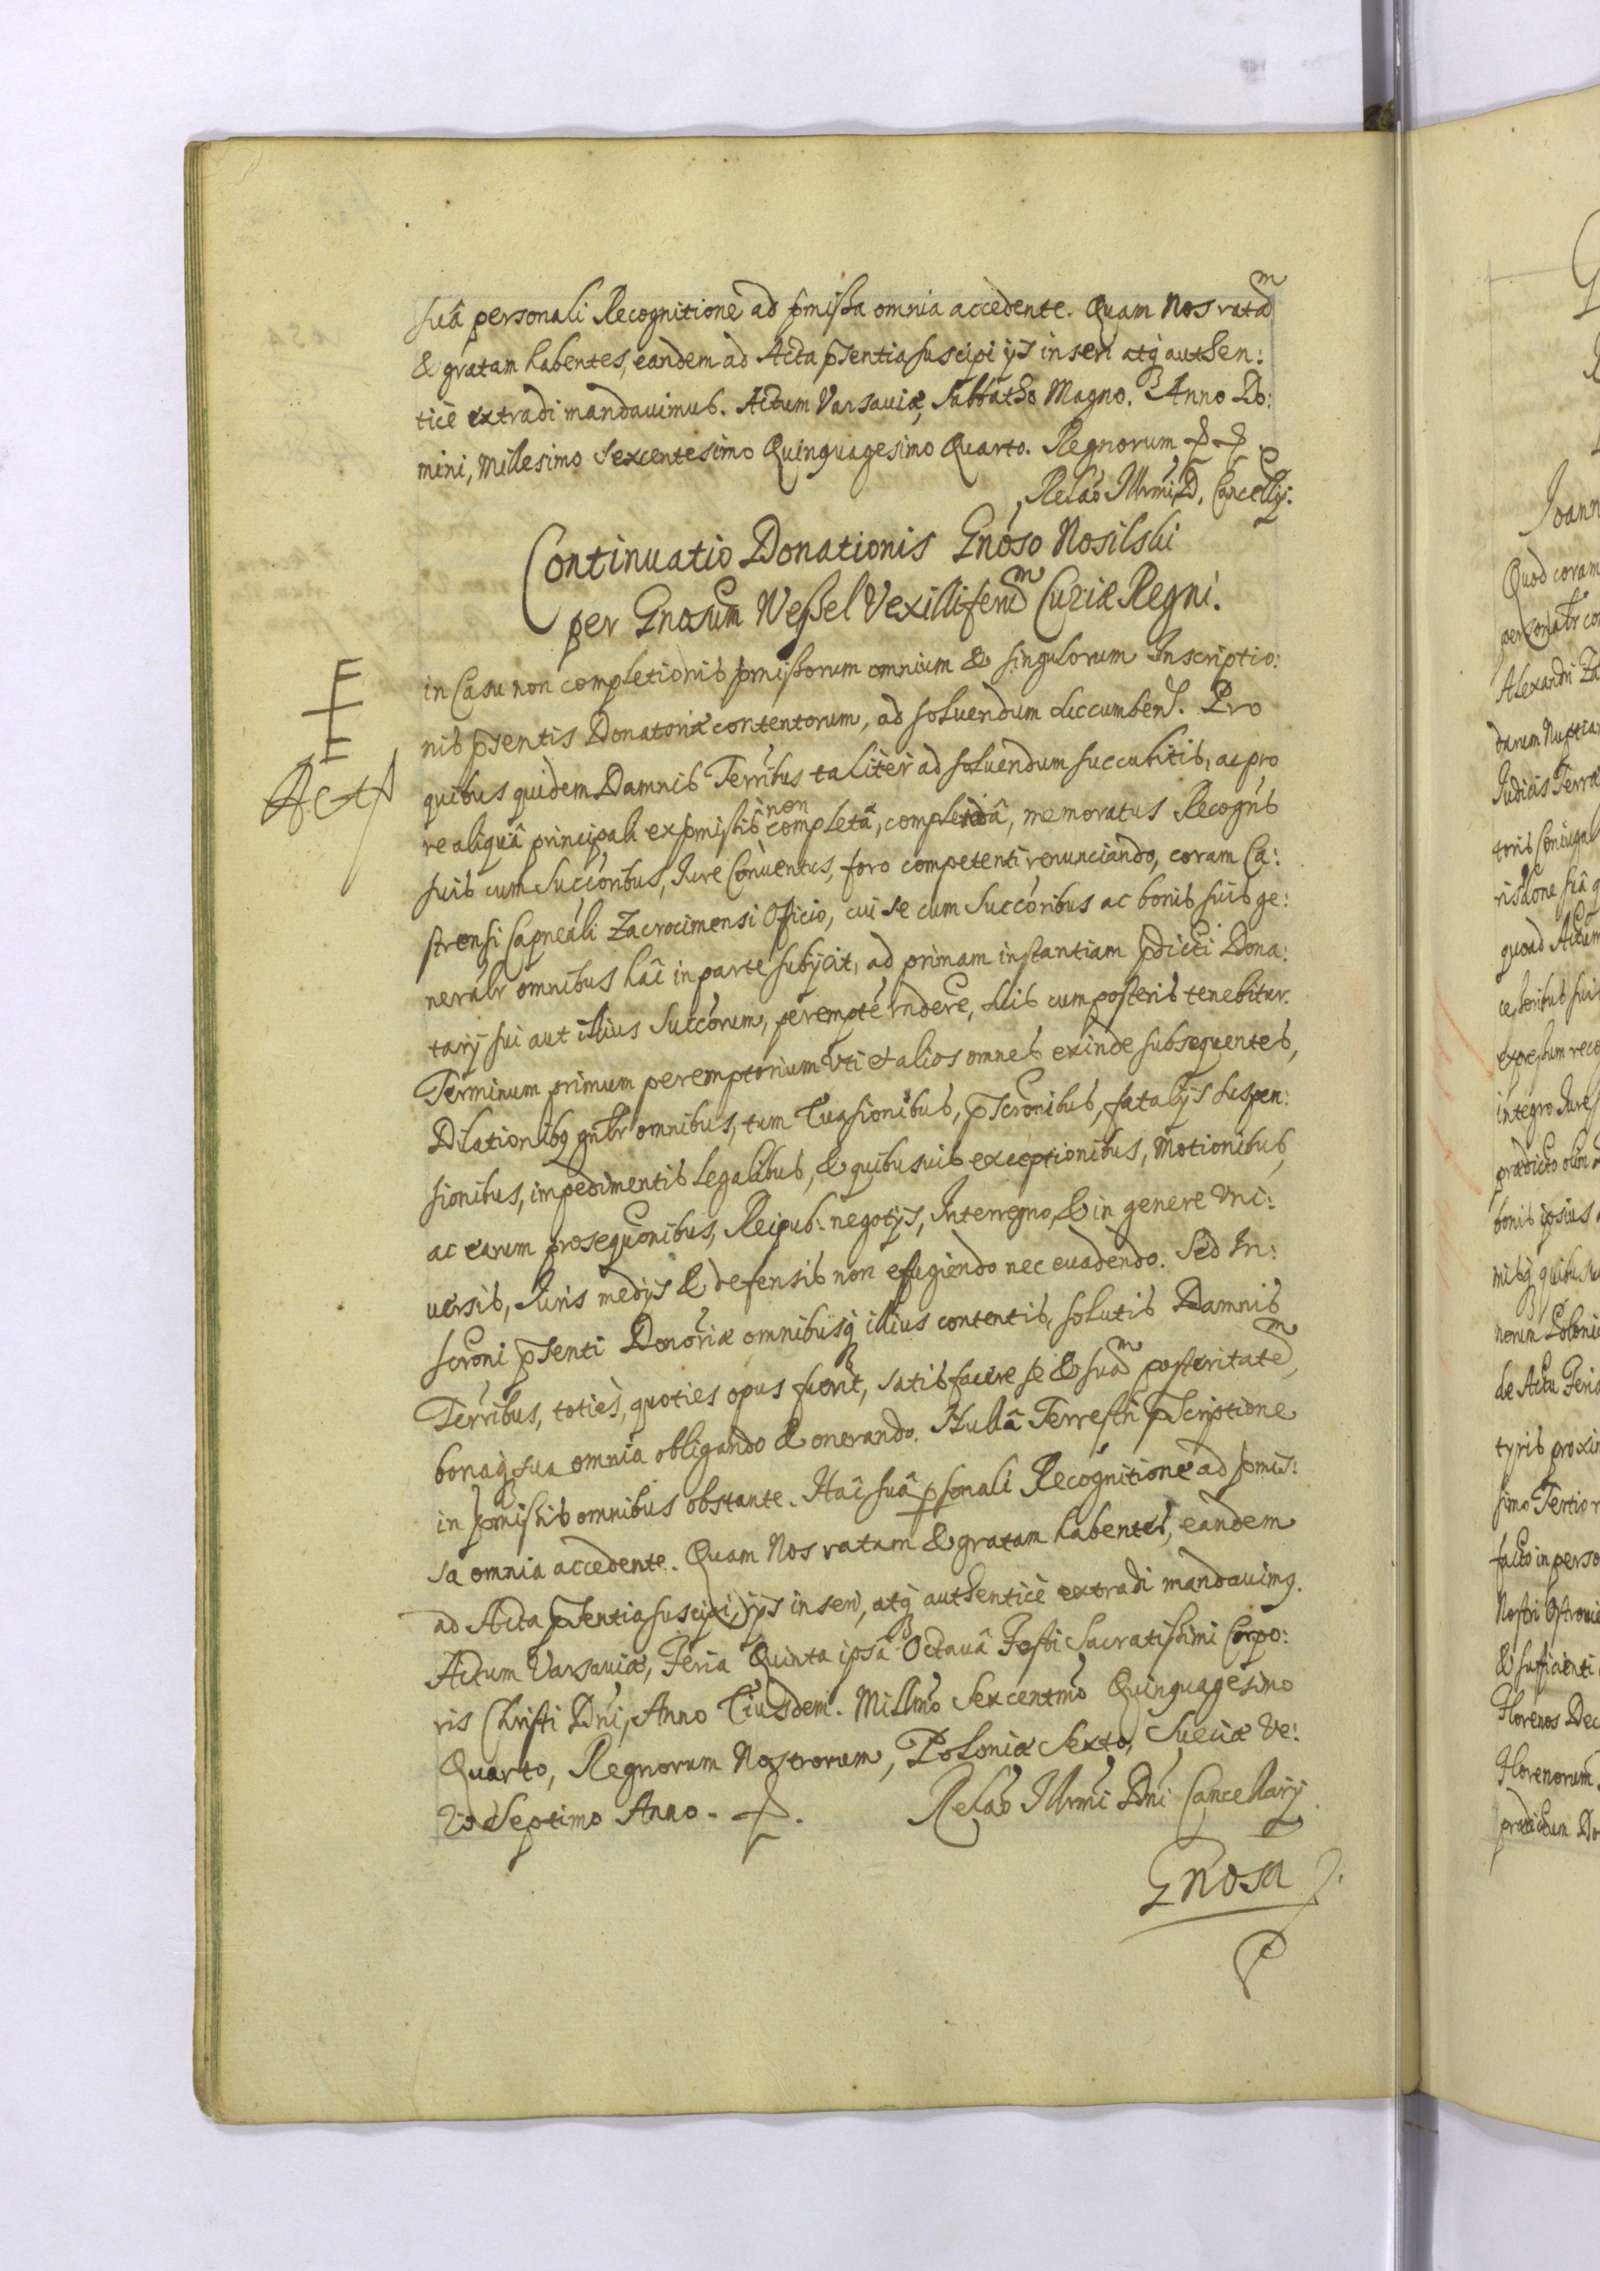 suâ personali Recognitione ad pmissa omnia accedente. Quam Nos ratam
& gratam habentes, eandem ad Acta psentia suscipi ijs inseri atq authen:
ticè extradi mandauimus. Actum Varsauiæ, Sabbatho Magno. Anno Do:
mini, Millesimo Sexcentesimo Quinquagesimo Quarto. Regnorum
Relao Illrmi D. Cancellrij.
Continuatio Donationis Gnoso Nosilski
per Gnosum Weßel Vexilliferum Curiæ Regni.
in Casu non completionis pmissorum omnium & singulorum Inscriptio:
nis psentis Donatoriæ contentorum, ad soluendum succumbend. Pro
quibus quidem Damnis Terribus taliter ad soluendum succubitis, ac pro
re aliquâ principali ex pmissis non completâ, complendâ, memoratus Recogns
suis cum Succoribus, Iure Conuentus, foro competenti renunciando, coram Ca:
strensi Capneali Zacrocimensi Officio, cui se cum Succoribus ac bonis suis ge:
neralr omnibus hac in parte subijcit, ad primam instantiam pdicti Dona:
tarij sui aut illius Succorum, perempte rndere, suis cum posteris tenebitur.
Terminum primum peremptorium Vti et alios omnes exinde subsequentes,
Dilationibq gnlr omnibus, tum Euasionibus, pscronibus, fatalijs suspen:
sionibus, impedimentis Legalibus, & quibusuis exceptionibus, Motionibus,
ac earum prosequonibus, Reipub: negotijs, Interregno, & in genere Vni:
uersis, Iuris medijs & defensis non effugiendo nec euadendo. Sed In:
scroni psenti Donoriæ omnibusq illius contentis, solutis Damnis
Terribus, toties, quoties opus fuerit, satisfacere se & suam posteritatem,
bonaq sua omnia obligando & onerando. Nullâ Terrestri pscriptione
in pmissis omnibus obstante. Hac suâ psonali Recognitione ad pmis:
sa omnia accedente. Quam Nos ratam & gratam habentes, eandem
ad Acta psentia suscipi, ijs inseri, atq authenticè extradi mandauimq.
Actum Varsauiæ, Feria Quinta ipsâ Octauâ Festi Sacratissimi Corpo:
ris Christi Dni, Anno Eiusdem. Millmo Sexcentmo Quinquagesimo
Quarto, Regnorum Nostrorum, Poloniæ Sexto, Sueciæ Ve:
ro Septimo Anno.
Relao Illrmi Dni Cancellarij
Gnosa